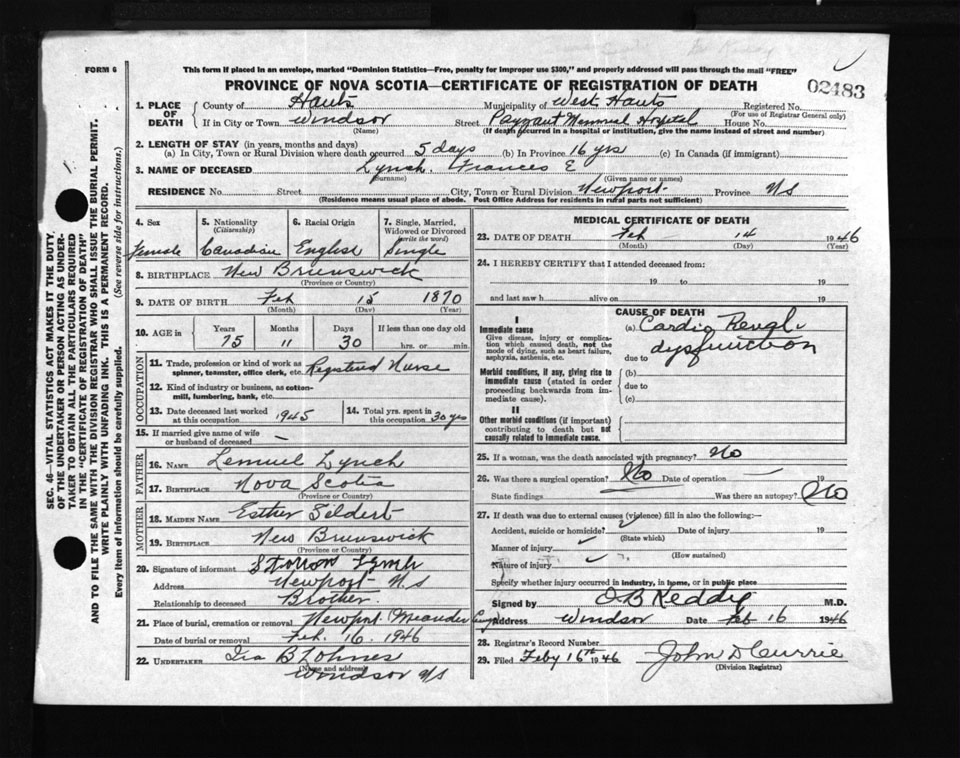 FORM 6
This form if placed in an envelope, marked "Dominion Statistics—Free, penalty for improper use $300," and properly addressed will pass through the mail "FREE"
PROVINCE OF NOVA SCOTIA—CERTIFICATE OF REGISTRATION OF DEATH
02483
SEC. 46—VITAL STATISTICS ACT MAKES IT THE DUTY,
OF THE UNDERTAKER OR PERSON ACTING AS UNDER-
TAKER TO OBTAIN ALL THE PARTICULARS REQUIRED
IN THE "CERTIFICATE OF REGISTRATION OF DEATH"
AND TO FILE THE SAME WITH THE DIVISION REGISTRAR WHO SHALL ISSUE THE BURIAL PERMIT.
WRITE PLAINLY WITH UNFADING INK. THIS IS A PERMANENT RECORD.
Every item of information should be carefully supplied. (See reverse side for instructions.)
1. PLACE OF DEATH
County of Hants Municipality of West Hants Registered No.
(For use of Registrar General only)
If in City or Town Windsor Street Payzant Memorial Hospital House No.
(Name) (If death occurred in a hospital or institution, give the name instead of street and number)
2. LENGTH OF STAY (in years, months and days)
(a) In City, Town or Rural Division where death occurred 5 days (b) In Province 16 yrs (c) In Canada (if immigrant)
3. NAME OF DECEASED Lynch Frances E
(Surname) (Given name or names)
RESIDENCE No. Street City, Town or Rural Division Newport Province NS
(Residence means usual place of abode. Post Office Address for residents in rural parts not sufficient)
4. Sex 5. Nationality (Citizenship) 6. Racial Origin 7. Single, Married, Widowed or Divorced (write the word)
Female Canadian English Single
8. BIRTHPLACE New Brunswick
(Province or Country)
9. DATE OF BIRTH Feb 15 1870
(Month) (Day) (Year)
10. AGE in Years Months Days If less than one day old
75 11 30 hrs. or min.
OCCUPATION
11. Trade, profession or kind of work as spinner, teamster, office clerk, etc. Registered Nurse
12. Kind of industry or business, as cotton-mill, lumbering, bank, etc.
13. Date deceased last worked at this occupation 1945
14. Total yrs. spent in this occupation 30 yrs
15. If married give name of wife or husband of deceased —
FATHER
16. NAME Lemuel Lynch
17. BIRTHPLACE Nova Scotia
(Province or Country)
MOTHER
18. MAIDEN NAME Esther
19. BIRTHPLACE New Brunswick
(Province or Country)
20. Signature of informant Lynch
Address Newport N.S
Relationship to deceased Brother
21. Place of burial, cremation or removal Newport (Meander
Date of burial or removal Feb. 16. 1946
22. UNDERTAKER Ira B Lohnes
(Name and address)
Windsor NS
MEDICAL CERTIFICATE OF DEATH
23. DATE OF DEATH Feb 14 1946
(Month) (Day) (Year)
24. I HEREBY CERTIFY that I attended deceased from:
19 to 19
and last saw h alive on 19
CAUSE OF DEATH
I
Immediate cause
Give disease, injury or complication which caused death, not the mode of dying, such as heart failure, asphyxia, asthenia, etc.
(a) Cardio Renal
dysfunction
due to
Morbid conditions, if any, giving rise to immediate cause (stated in order proceeding backwards from immediate cause).
(b)
due to
(c)
II
Other morbid conditions (if important) contributing to death but not causally related to immediate cause.
25. If a woman, was the death associated with pregnancy? No
26. Was there a surgical operation? No Date of operation — 19
State findings Was there an autopsy? No
27. If death was due to external causes (violence) fill in also the following:—
Accident, suicide or homicide? Date of injury 19
(State which)
Manner of injury
(How sustained)
Nature of injury
Specify whether injury occurred in industry, in home, or in public place
Signed by O B Keddy M.D.
Address Windsor Date Feb 16 1946
28. Registrar's Record Number
29. Filed Feby 16th 1946 John D Currie
(Division Registrar)